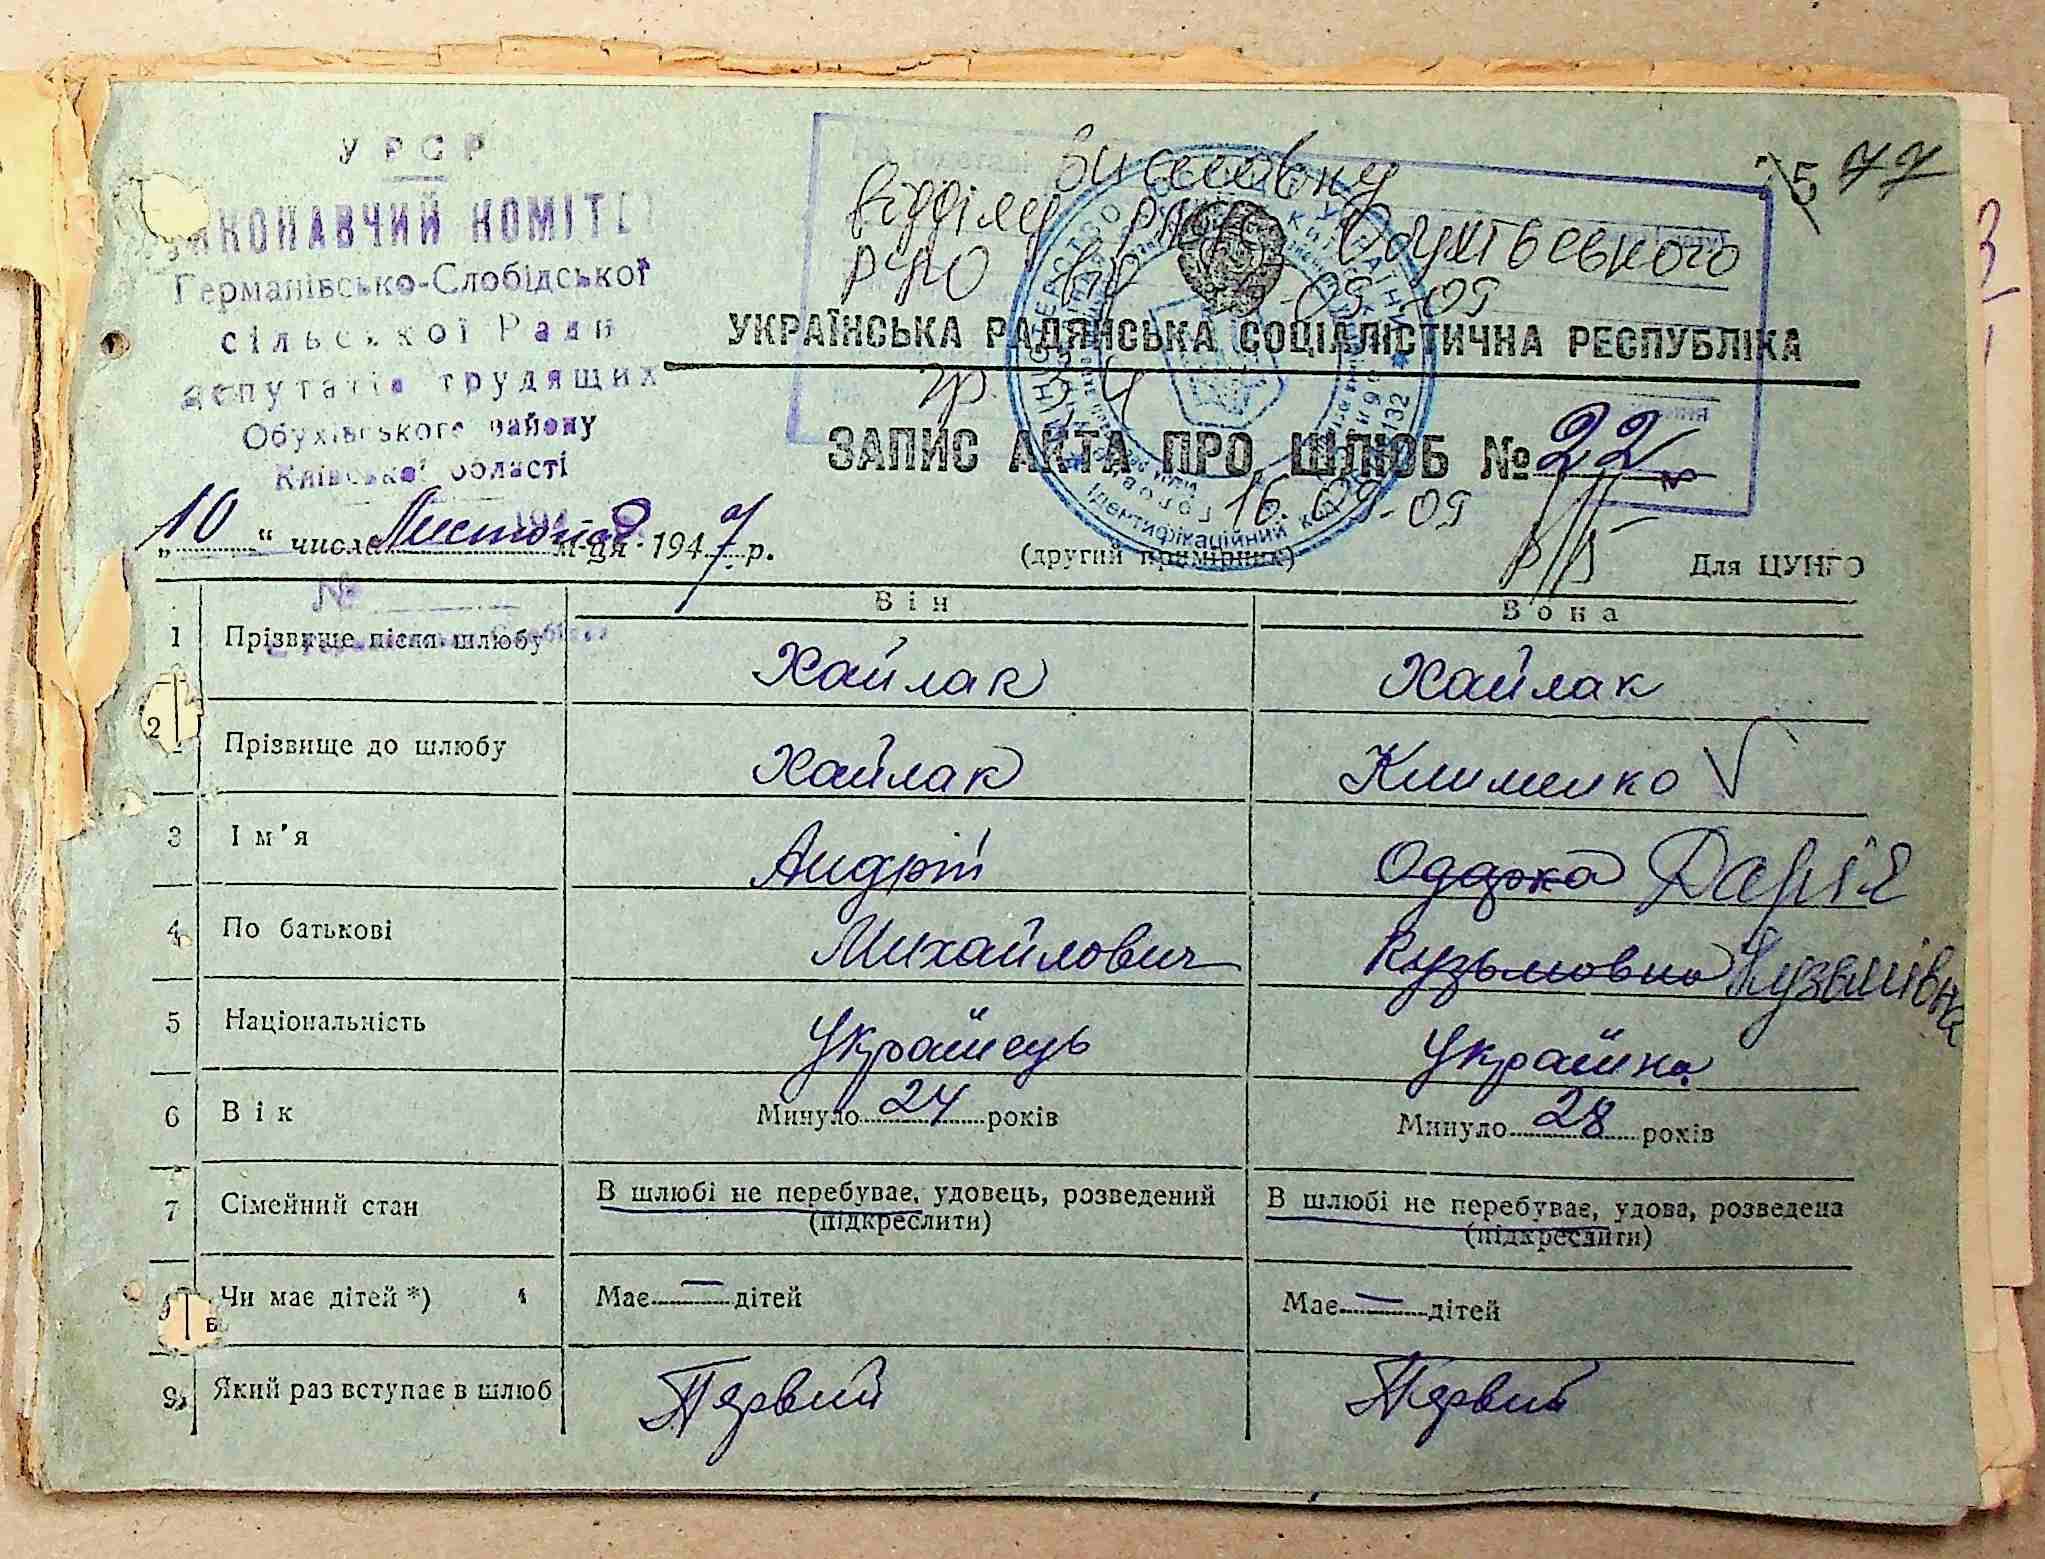 УРСР
ВИКОНАВЧИЙ КОМІТЕТ
Германівсько-Слобідської
сільської Ради
депутатів трудящих
Обухівського району
Київської області
77
відділу
09-09
УКРАЇНСЬКА РАДЯНСЬКА СОЦІАЛІСТИЧНА РЕСПУБЛІКА
ЗАПИС АКТА ПРО ШЛЮБ № 22
16.09-09
Ідентифікаційний код
„10“ числа Листопад м-ця 1947 р.
(другий примірник)
Для ЦУНГО
№
Він
Вона
1 Прізвище після шлюбу Хайлак Хайлак
2 Прізвище до шлюбу Хайлак Клименко
3 Ім'я Андрій Одарка Дарія
4 По батькові Михайлович Кузьмовна Кузьмівна
5 Національність Українець Українна
6 Вік Минуло 24 років Минуло 28 рохів
7 Сімейний стан В шлюбі не перебуває, удовець, розведений (підкреслити) В шлюбі не перебуває, удова, розведена (підкреслити)
Чи має дітей *) Має — дітей Має — дітей
9 Який раз вступає в шлюб Первий Первий